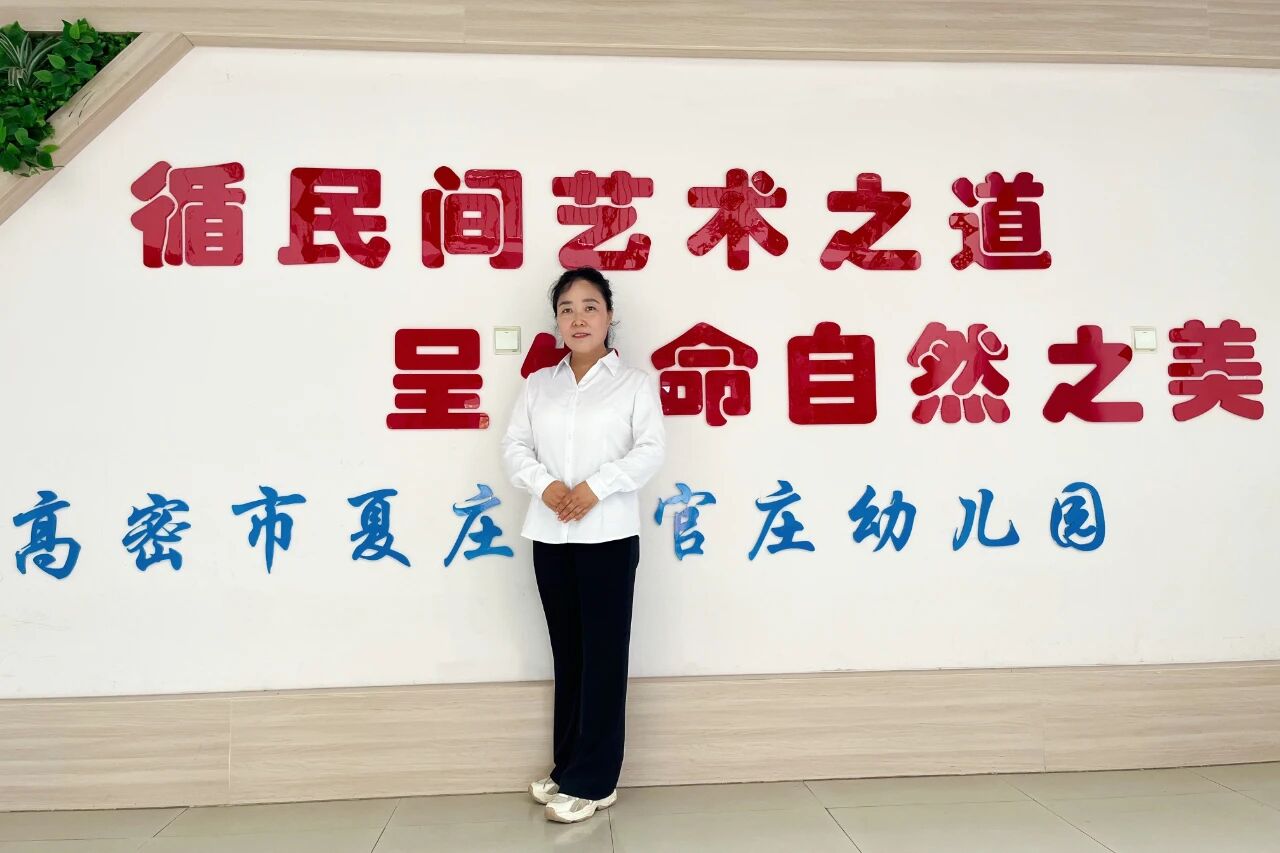 循民间艺术之道
呈生命自然之美
高密市夏庄 官庄幼儿园